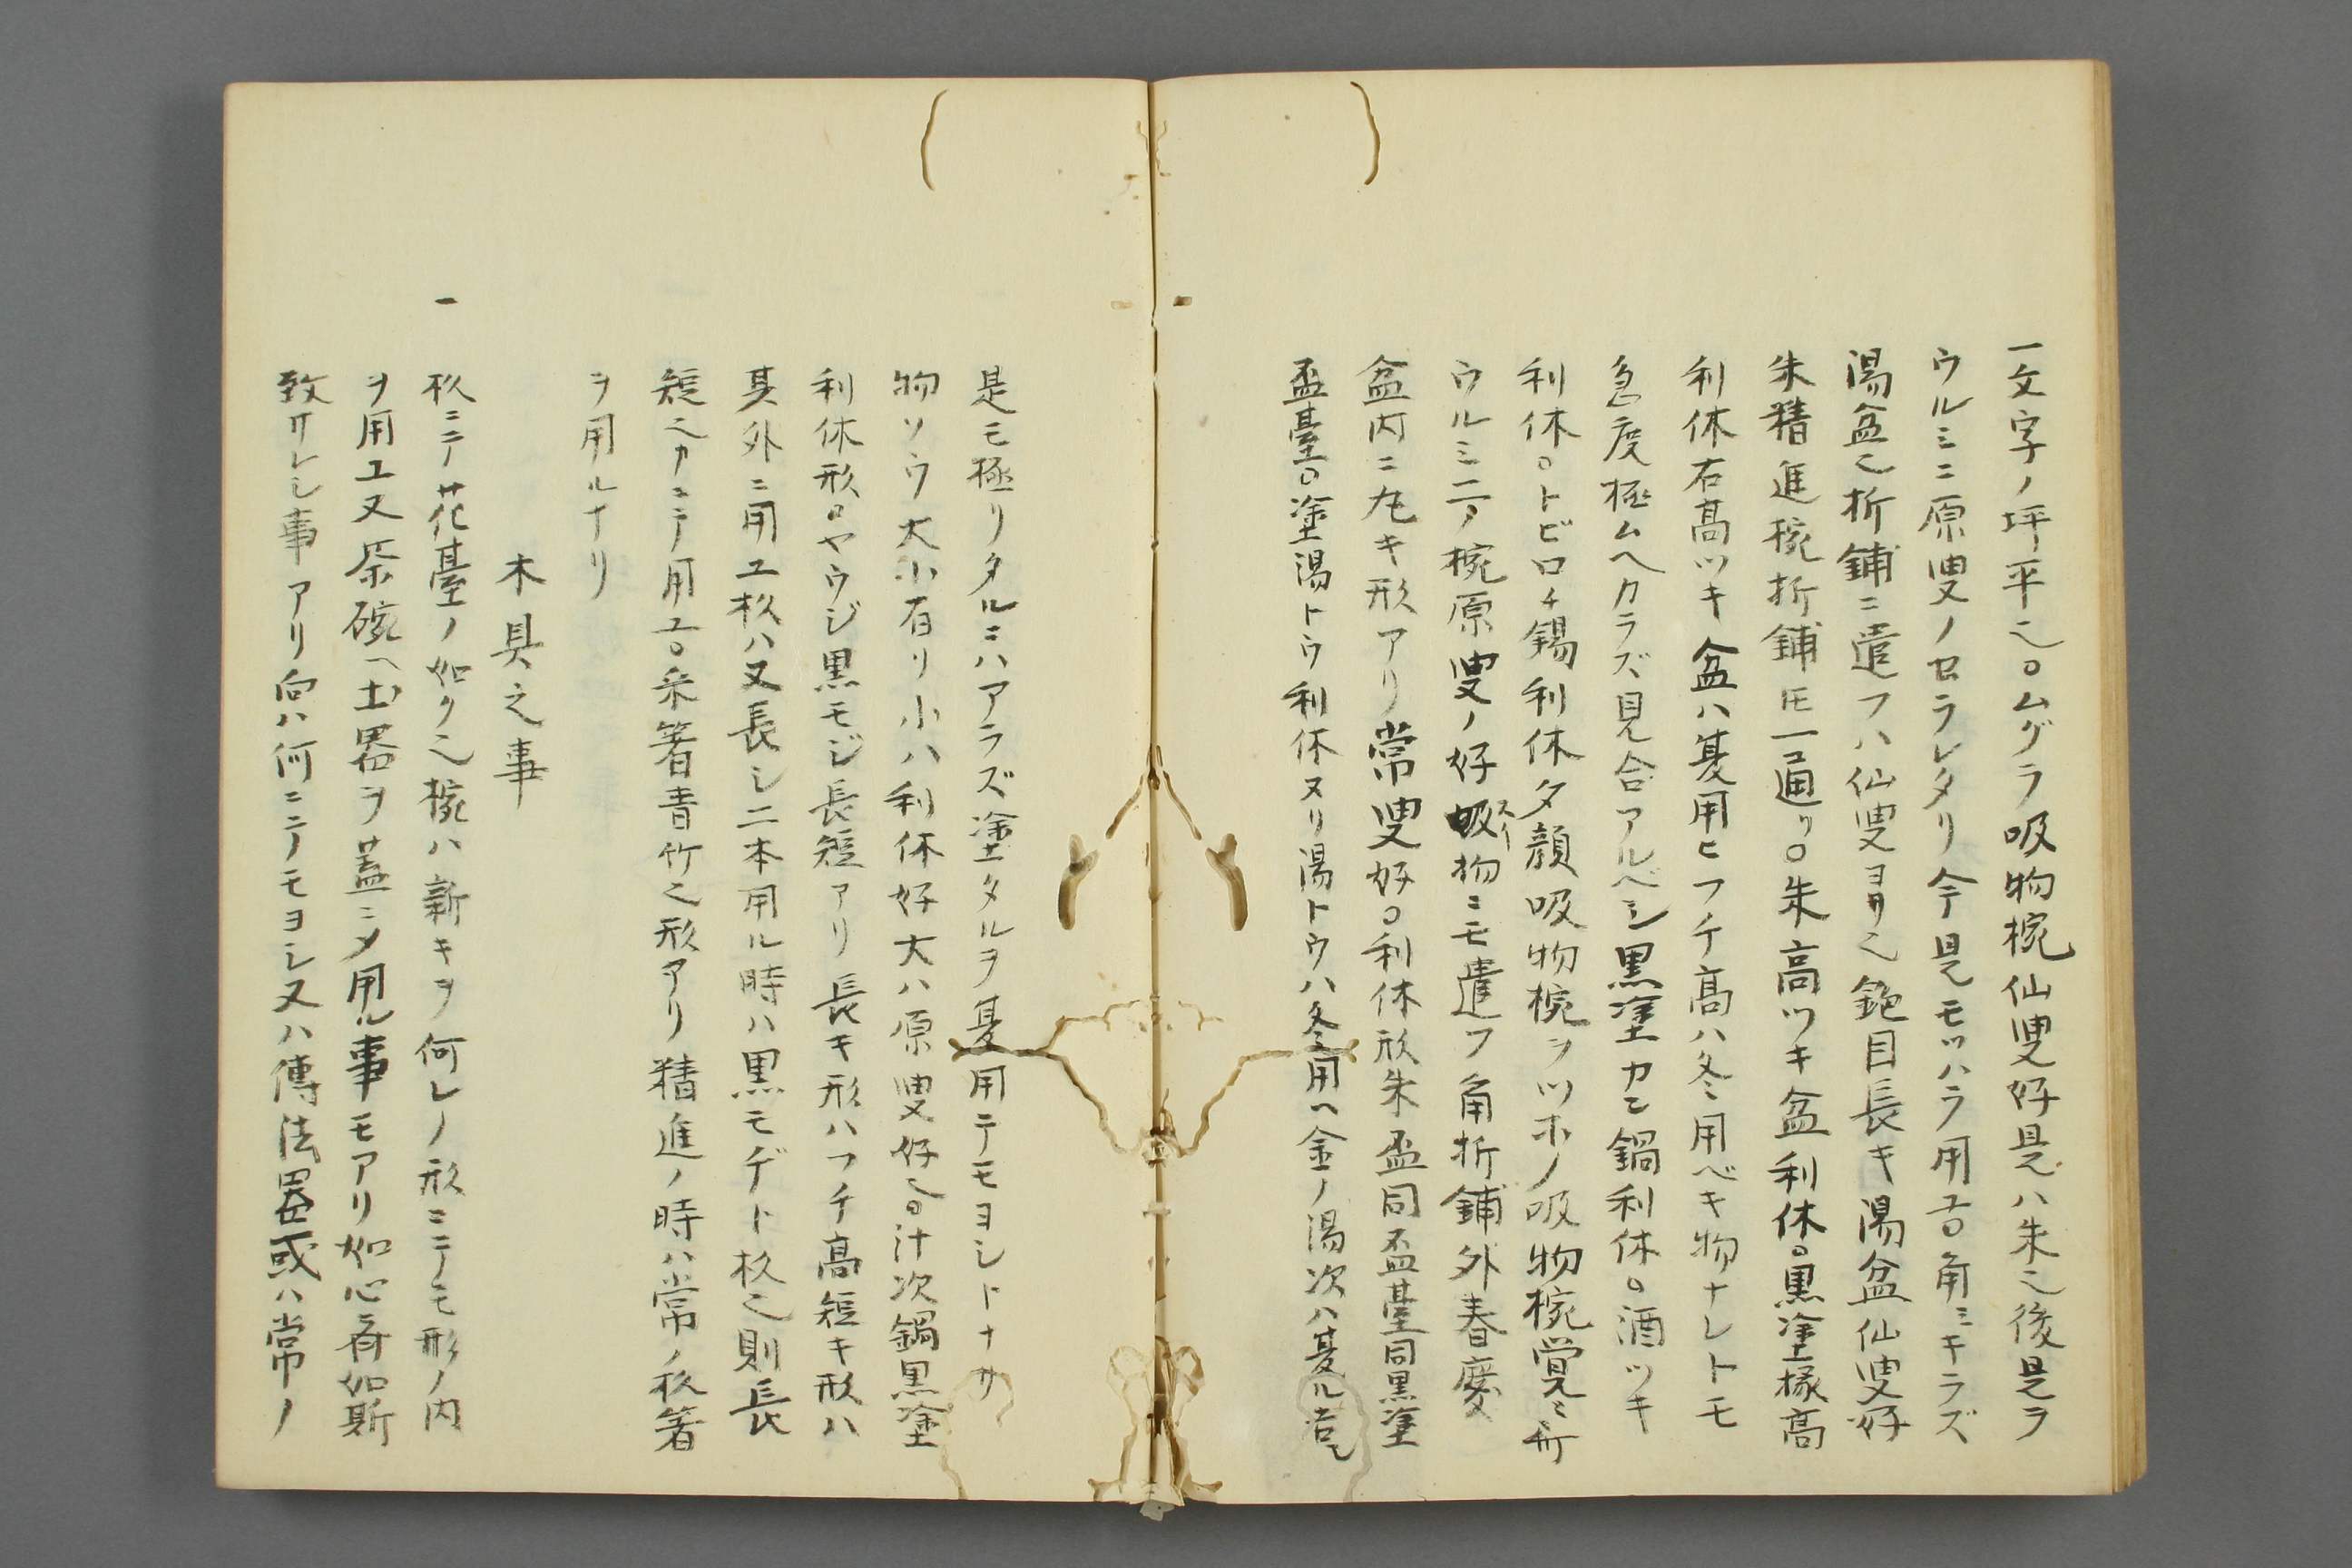 一文字ノ坪平也○ムグラ吸物椀仙叟好是ハ朱也後是ヲ
ウルミニ原叟ノセラレタリ今是モツハラ用ユ○角ミキラズ
湯盆也折鋪ニ遣フハ仙叟ヨリ也鉋目長キ湯盆仙叟好
朱精進椀折鋪ﾓ一通リ○朱高ツキ盆利休○黒塗椽高
利休右高ツキ盆ハ夏用ヒフチ高ハ冬用ベキ物ナレトモ
急度極ムヘカラズ見合アルベシ黒塗カン鍋利休○酒ツキ
利休○トビロチ錫利休夕顔吸物椀ヲツホノ吸物椀覚々斎
ウルミニテ椀原叟ノ好吸物ニモ遣フ角折鋪外春慶
盆内ニ丸キ形アリ常叟好○利休形朱盃同盃臺同黒塗
盃臺○塗湯トウ利休ヌリ湯トウハ冬用ヘ金ノ湯次ハ夏ル吉シ
是モ極リタルニハアラズ塗タルヲ夏用テモヨシトナサ
物ソウ大小有リ小ハ利休好大ハ原叟好也○汁次鍋黒塗
利休形○ヤウジ黒モジ長短アリ長キ形ハフチ高短キ形ハ
其外ニ用ユ杉ハ又長シ二本用ル時ハ黒モヂト杉也則長
短也カニテ用ユ○菜箸青竹也形アリ精進ノ時ハ常ノ杉箸
ヲ用ルナリ
木具之事
一 杉ニテ花臺ノ如ク也椀ハ新キヲ何レノ形ニテモ形ノ内
ヲ用ユ又茶碗ヘ土器ヲ蓋ニメ用ル事モアリ如心斎如斯
致サレシ事アリ向ハ何ニテモヨシ又ハ傳法器或ハ常ノ